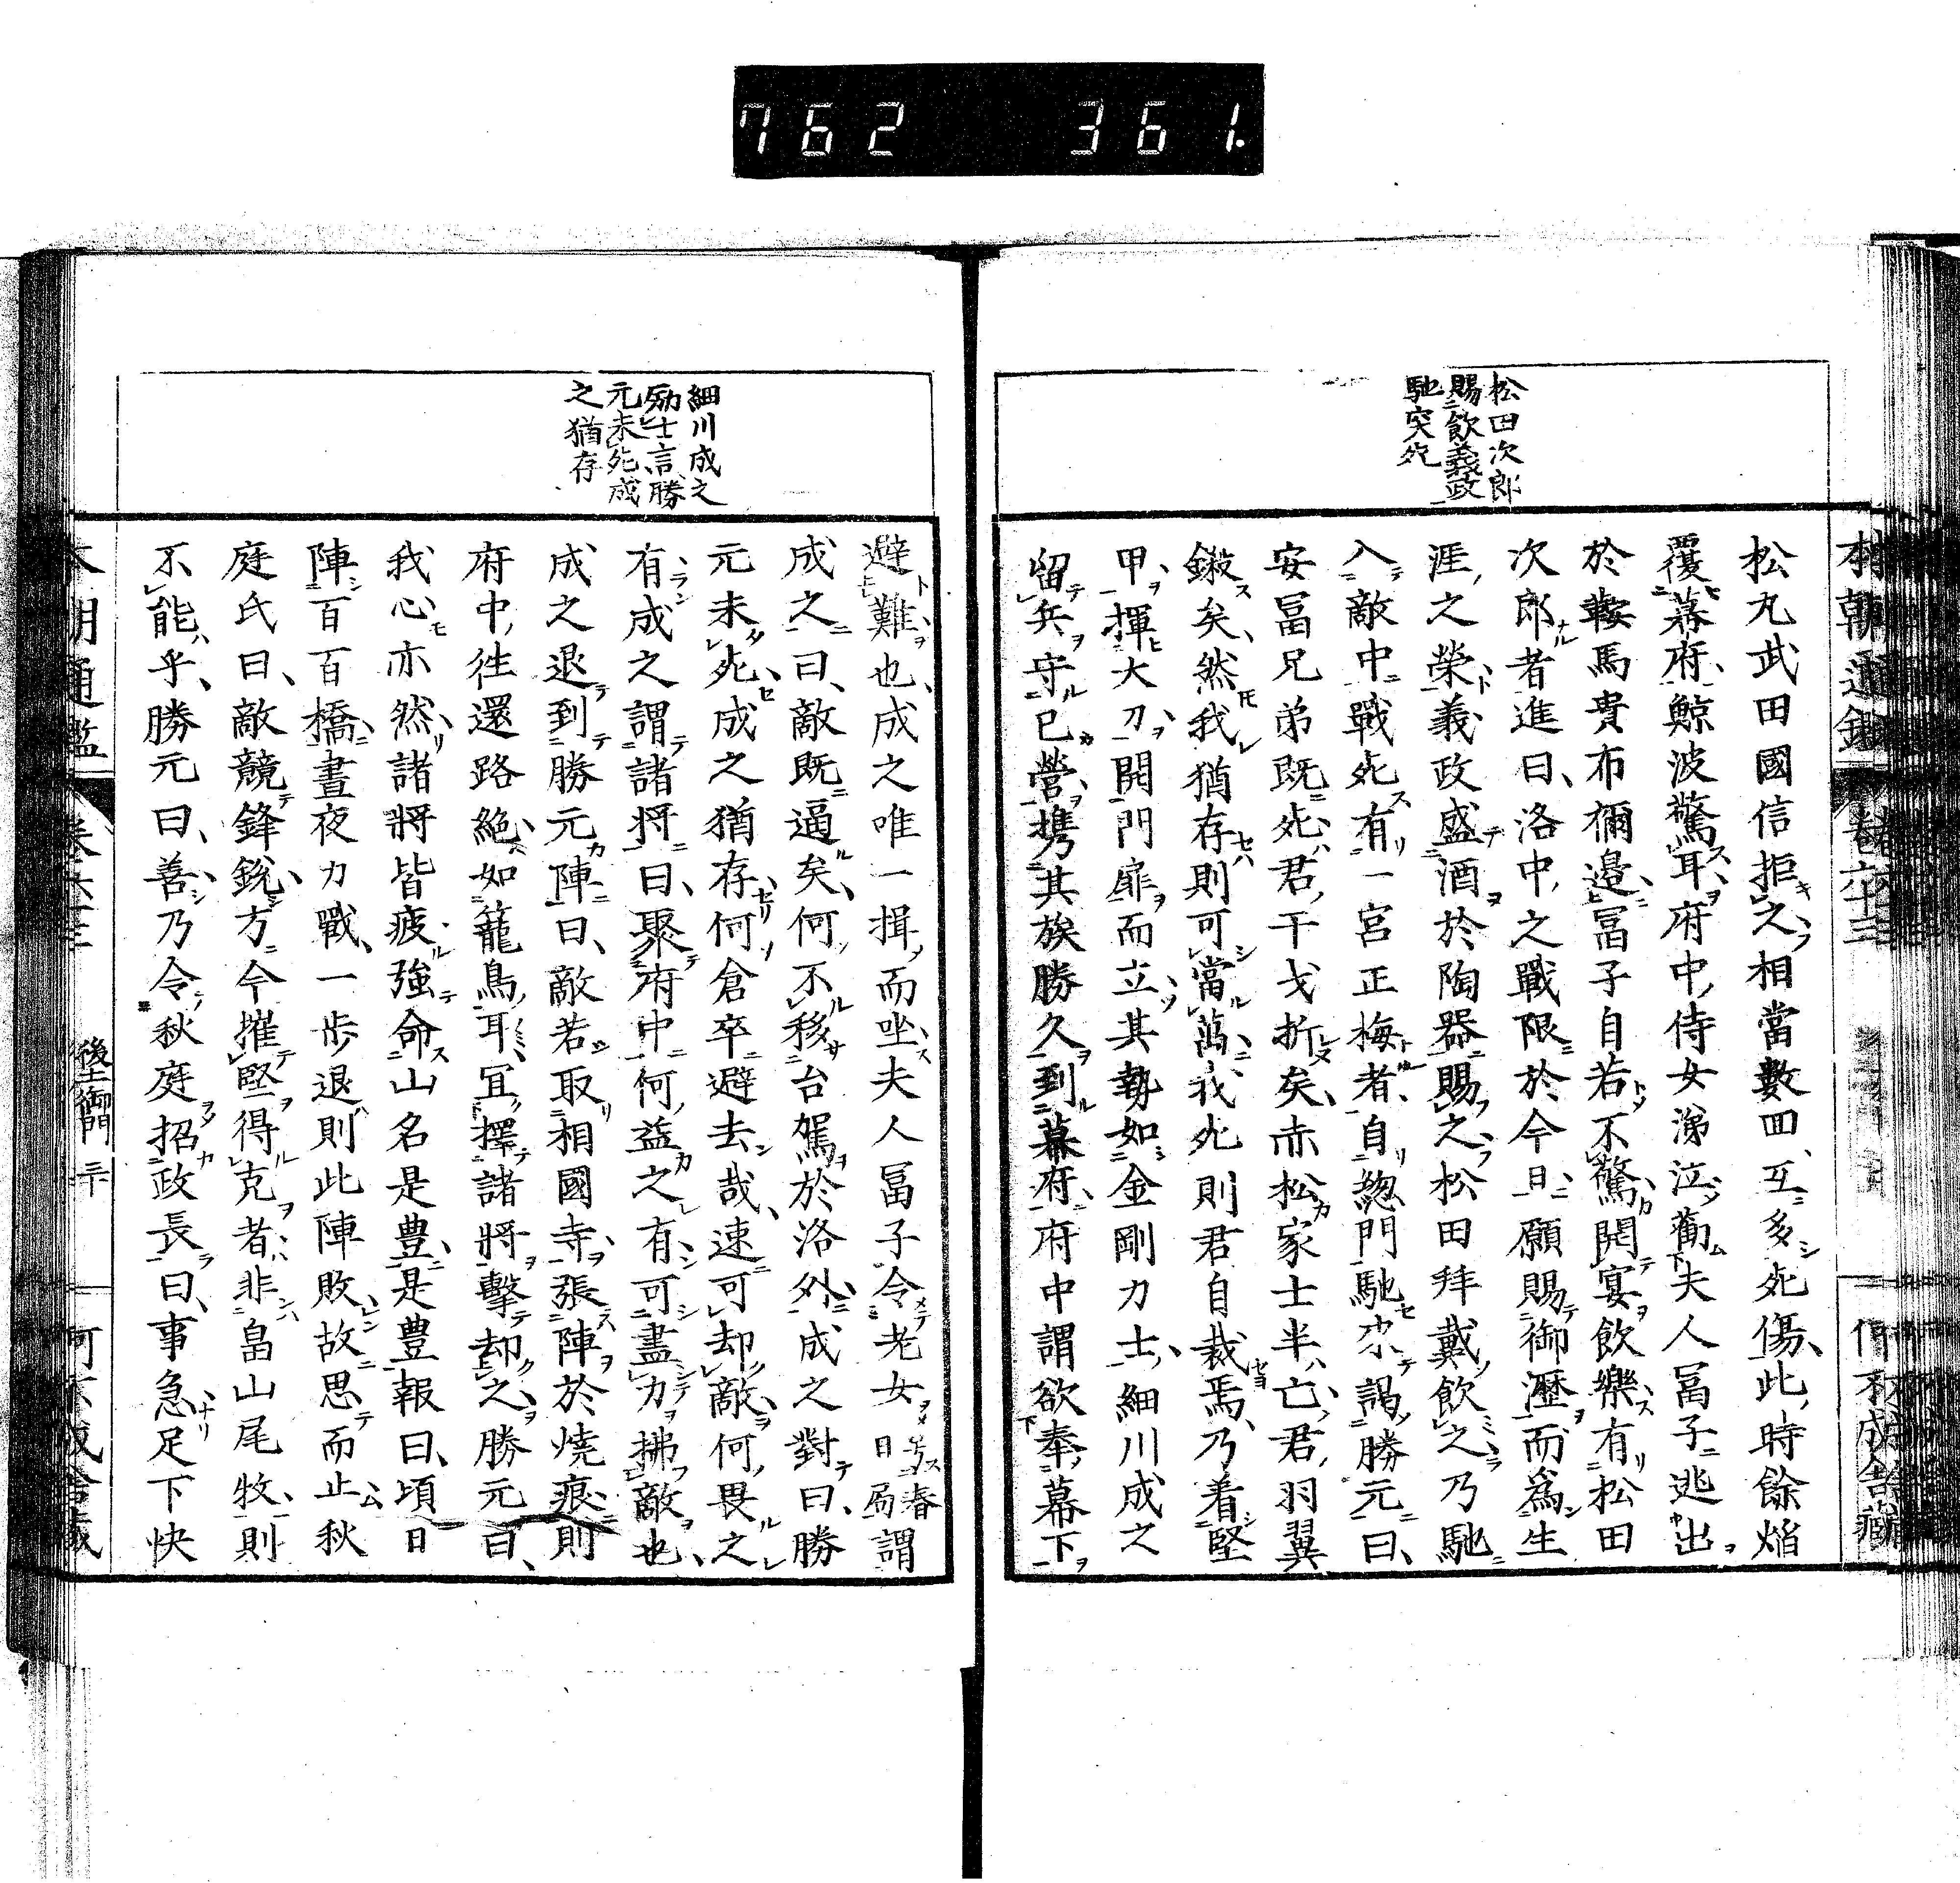 762 361.
松田次郎
賜飲義政
馳突死
松丸武田國信拒之相當數回互多死傷此時餘焰
覆幕府鯨波驚耳府中侍女涕泣勸夫人冨子逃出
於鞍馬貴布禰邉冨子自若不驚開宴飲樂有松田
次郎者進曰洛中之戰限於今日願賜御瀝而爲生
涯之榮義政盛酒於陶器賜之松田拜戴飲之乃馳
入敵中戰死有一宮正梅者自緫門馳來謁勝元曰
安冨兄弟既死君干戈折矣赤松家士半亡君羽翼
鎩矣然我猶存則可當萬我死則君自裁焉乃着堅
甲揮大刀開門扉而立其勢如金剛力士細川成之
留兵守已營携其族勝久到幕府府中謂欲奉幕下
細川成之
励士言勝
元未死成
之猶存
避難也成之唯一揖而坐夫人冨子令老女号春日局謂
成之曰敵既逼矣何不移台駕於洛外成之對曰勝
元未死成之猶存何倉卒避去哉速可却敵何畏之
有成之謂諸將曰聚府中何益之有可盡力拂敵也
成之退到勝元陣曰敵若取相國寺張陣於燒痕則
府中往還路絶如籠鳥耳冝擇諸將擊却之勝元曰
我心亦然諸將皆疲強命山名是豊是豊報曰頃日
陣百百橋晝夜力戰一歩退則此陣敗故思而止秋
庭氏曰敵競鋒銳方今摧堅得克者非畠山尾牧則
不能乎勝元曰善乃令秋庭招政長曰事急足下快
後土御門 三十